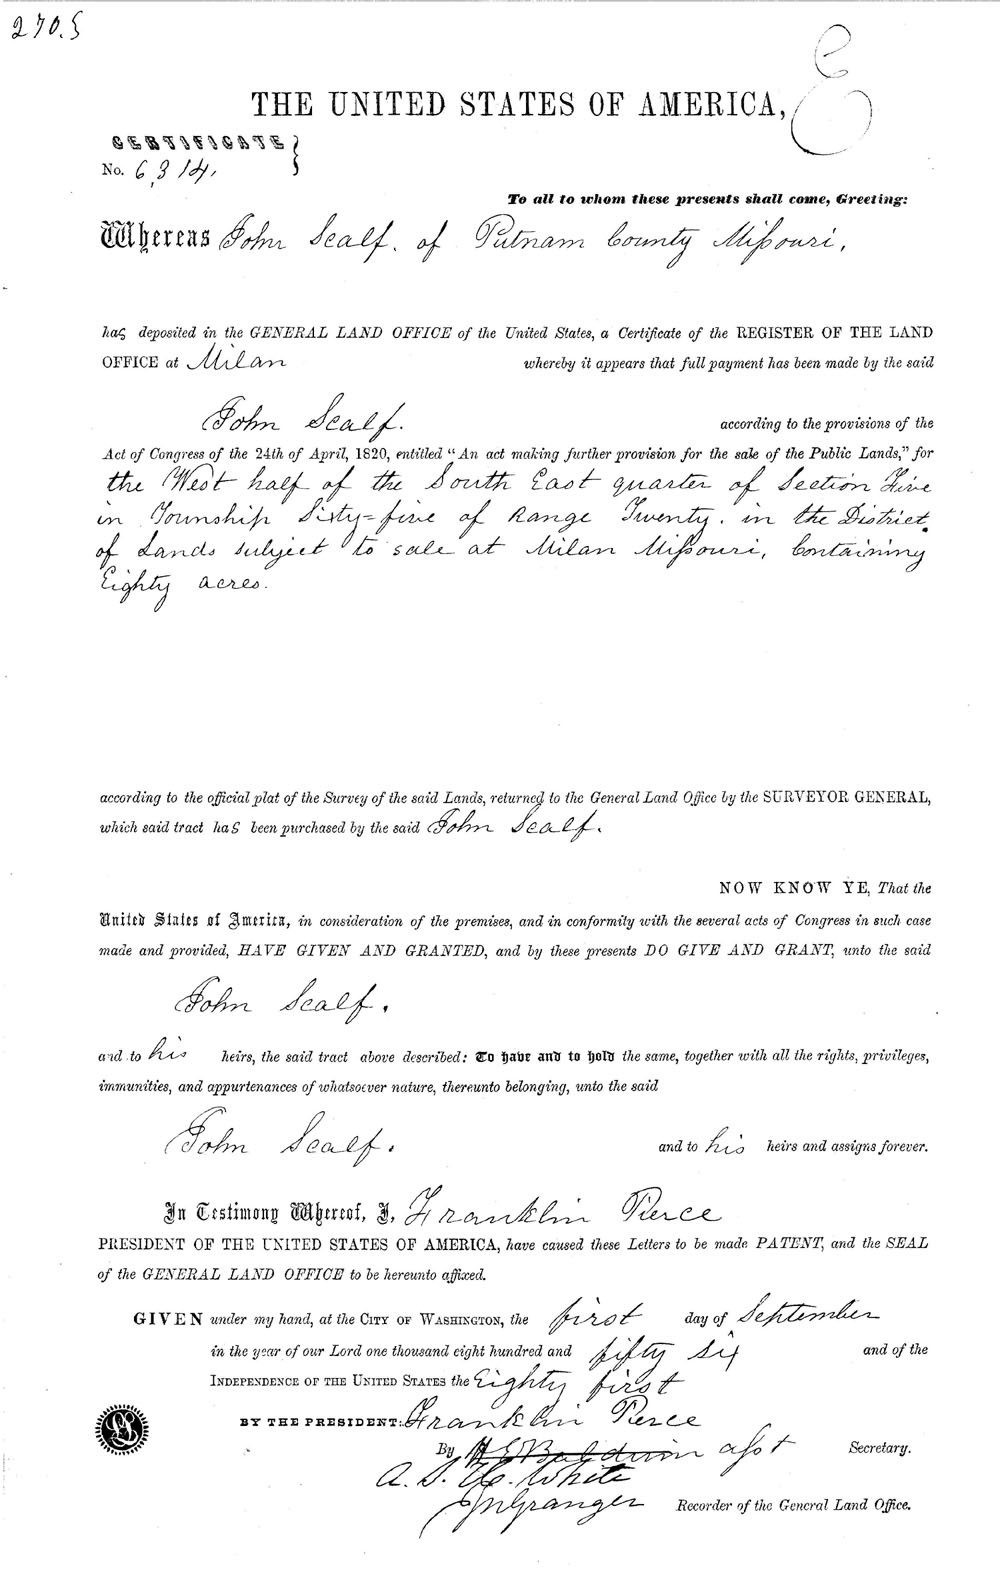 270.5
E
THE UNITED STATES OF AMERICA,
CERTIFICATE
No. 6,314.
To all to whom these presents shall come, Greeting:
Whereas John Scalf. of Putnam County Missouri,
has deposited in the GENERAL LAND OFFICE of the United States, a Certificate of the REGISTER OF THE LAND
OFFICE at Milan whereby it appears that full payment has been made by the said
John Scalf. according to the provisions of the
Act of Congress of the 24th of April, 1820, entitled "An act making further provision for the sale of the Public Lands," for
the West half of the South East quarter of Section Five
in Township Sixty=five of Range Twenty. in the District
of Lands subject to sale at Milan Missouri, Containing
Eighty acres.
according to the official plat of the Survey of the said Lands, returned to the General Land Office by the SURVEYOR GENERAL,
which said tract has been purchased by the said John Scalf.
NOW KNOW YE, That the
United States of America, in consideration of the premises, and in conformity with the several acts of Congress in such case
made and provided, HAVE GIVEN AND GRANTED, and by these presents DO GIVE AND GRANT, unto the said
John Scalf.
and to his heirs, the said tract above described: To have and to hold the same, together with all the rights, privileges,
immunities, and appurtenances of whatsoever nature, thereunto belonging, unto the said
John Scalf. and to his heirs and assigns forever.
In Testimony Whereof, I, Franklin Pierce
PRESIDENT OF THE UNITED STATES OF AMERICA, have caused these Letters to be made PATENT, and the SEAL
of the GENERAL LAND OFFICE to be hereunto affixed.
GIVEN under my hand, at the CITY OF WASHINGTON, the first day of September
in the year of our Lord one thousand eight hundred and fifty six and of the
INDEPENDENCE OF THE UNITED STATES the Eighty first
BY THE PRESIDENT: Franklin Pierce
By H E Baldwin asst Secretary.
A. S. H. White
J N Granger Recorder of the General Land Office.